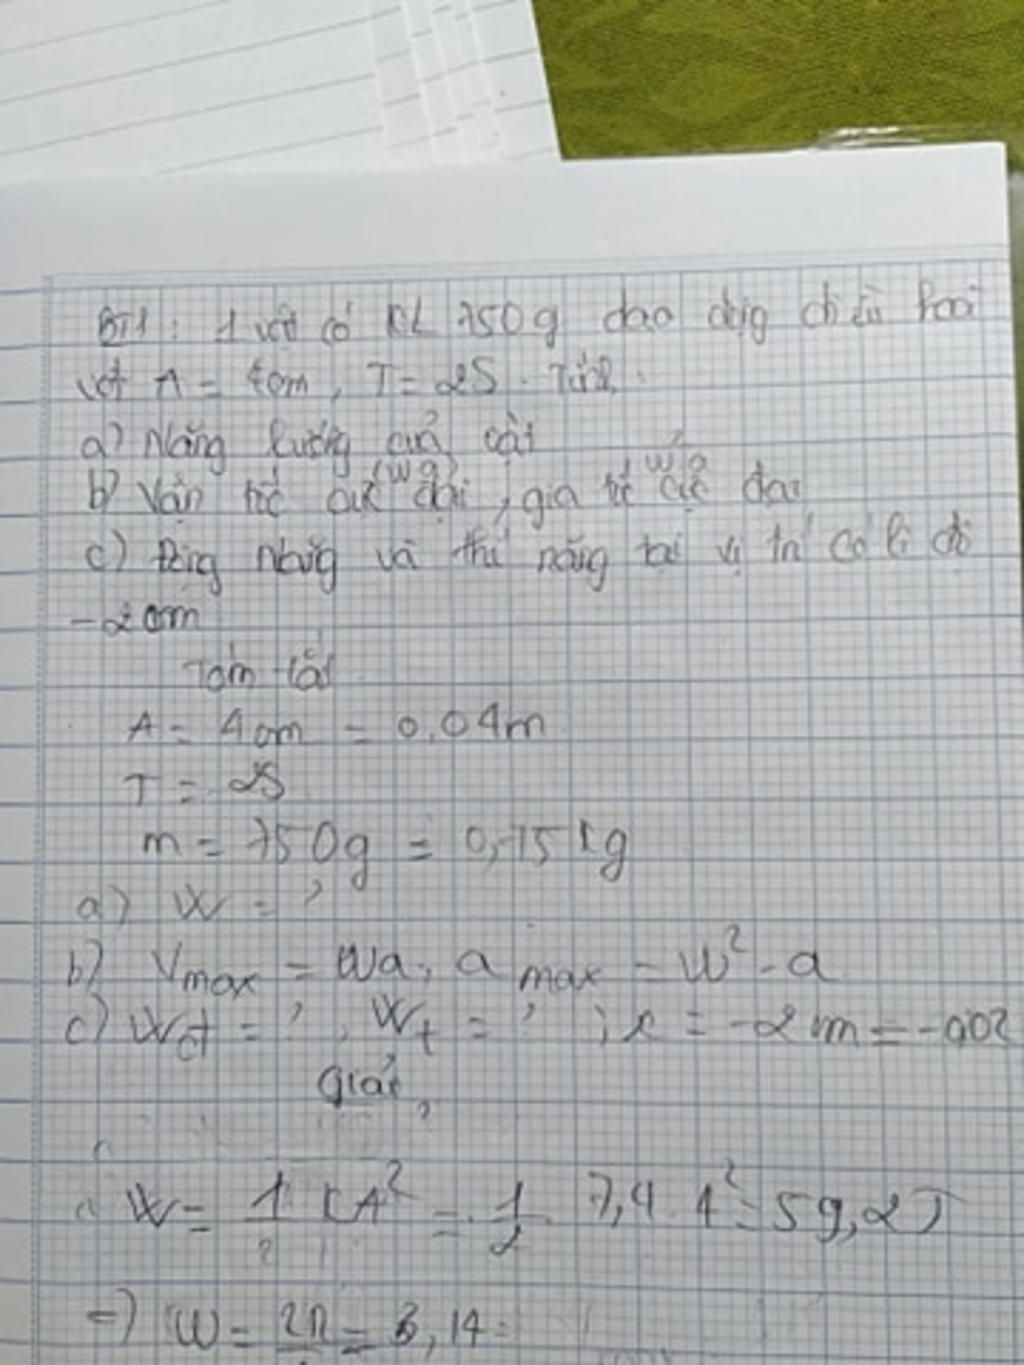 BT1: 1 vật có KL 750g dao động điều hoà
với A = 4cm, T = 2S. Tính.
a) Năng lượng của vật
b) Vận tốc cực (wa) đại, gia tốc cực đại
c) Động năng và thế năng tại vị trí có li độ
-2cm
Tóm tắt
A = 4cm = 0,04m
T = 2S
m = 750g = 0,75kg
a) W = ?
b) Vmax = wa, a max = w² - a
c) Wđ = ?, Wt = ? ; x = -2m = -002
Giải
W = 1/2 KA² = 1/2 7,4 4² = 59,2J
=) W = 2π = 3,14